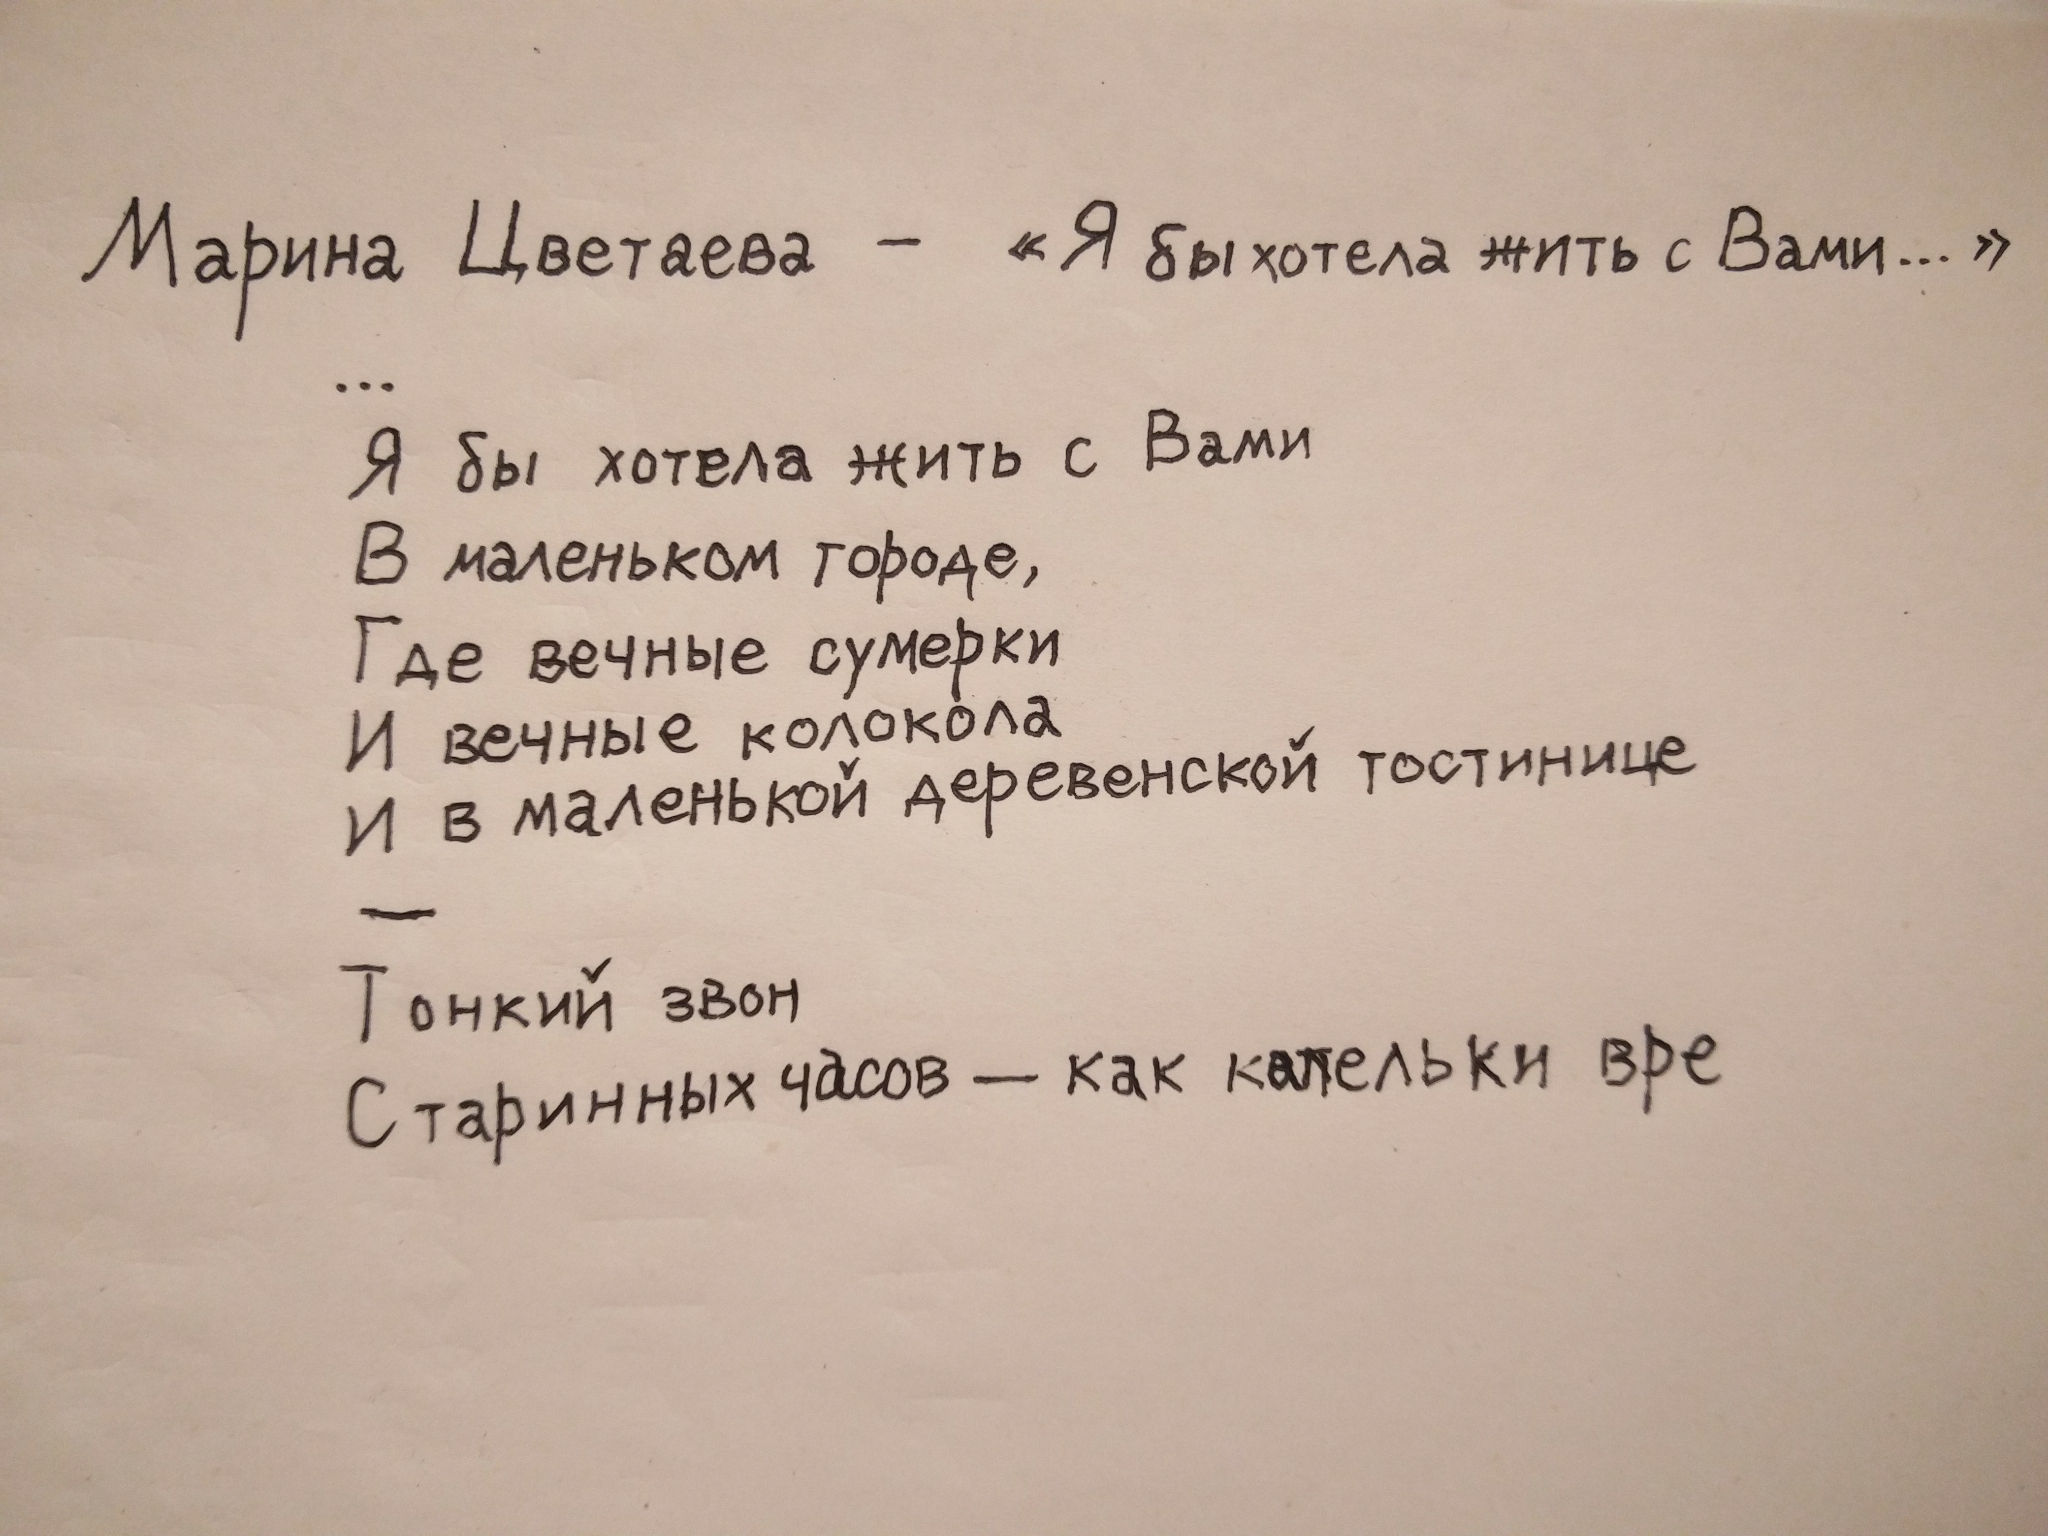 Марина Цветаева – «Я бы хотела жить с Вами...»
...
Я бы хотела жить с Вами
В маленьком городе,
Где вечные сумерки
И вечные колокола
И в маленькой деревенской гостинице
—
Тонкий звон
Старинных часов — как капельки вре